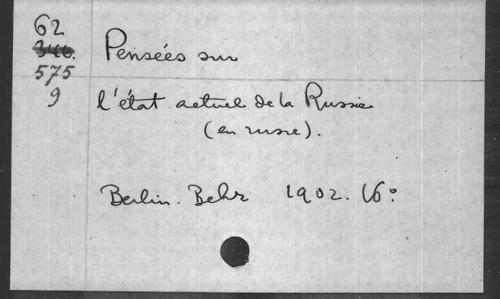 62
346.
575
9
Pensées sur
l'état actuel de la Russie
(en russe).
Berlin. Behr 1902. 16°